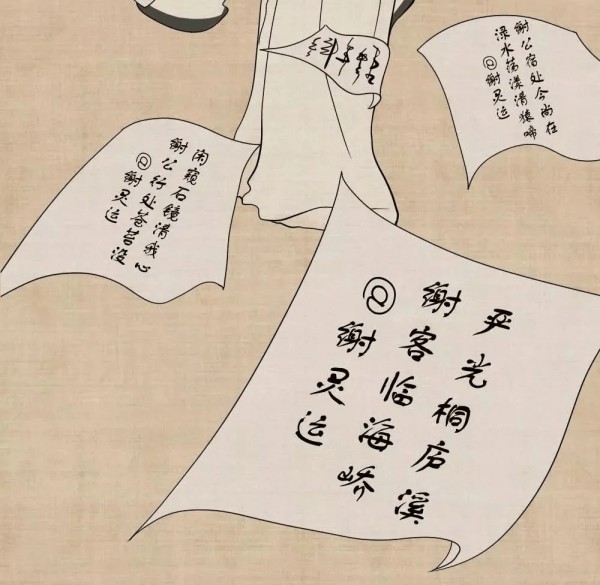 谢公宿处今尚在
渌水荡漾清猿啼
@谢灵运
闲窥石镜清我心
谢公行处苍苔没
@谢灵运
严光桐庐溪
谢客临海峤
@谢灵运